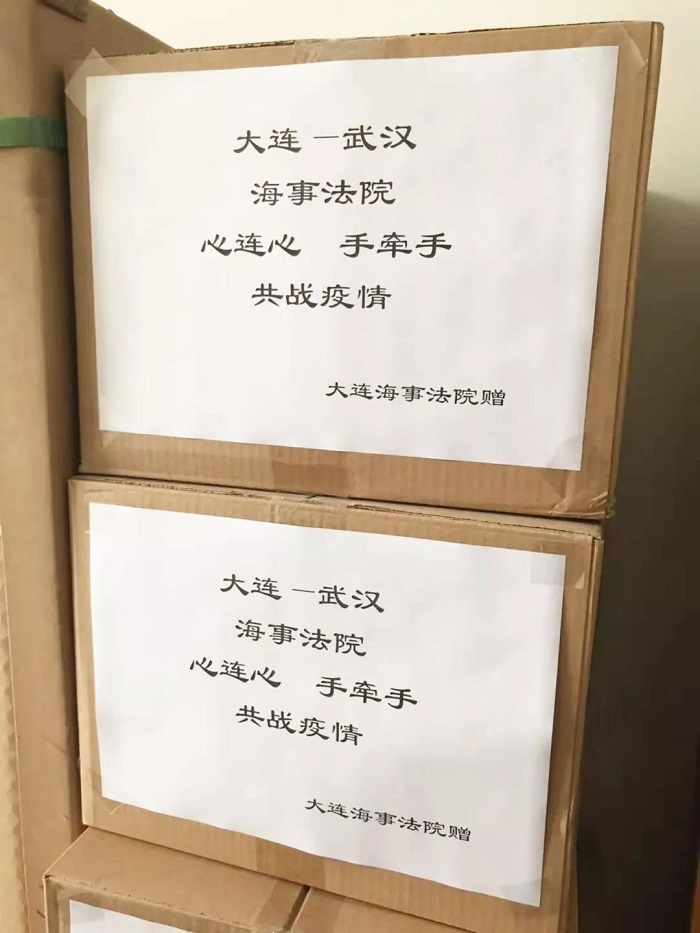 大连—武汉
海事法院
心连心 手牵手
共战疫情
大连海事法院赠
大连—武汉
海事法院
心连心 手牵手
共战疫情
大连海事法院赠